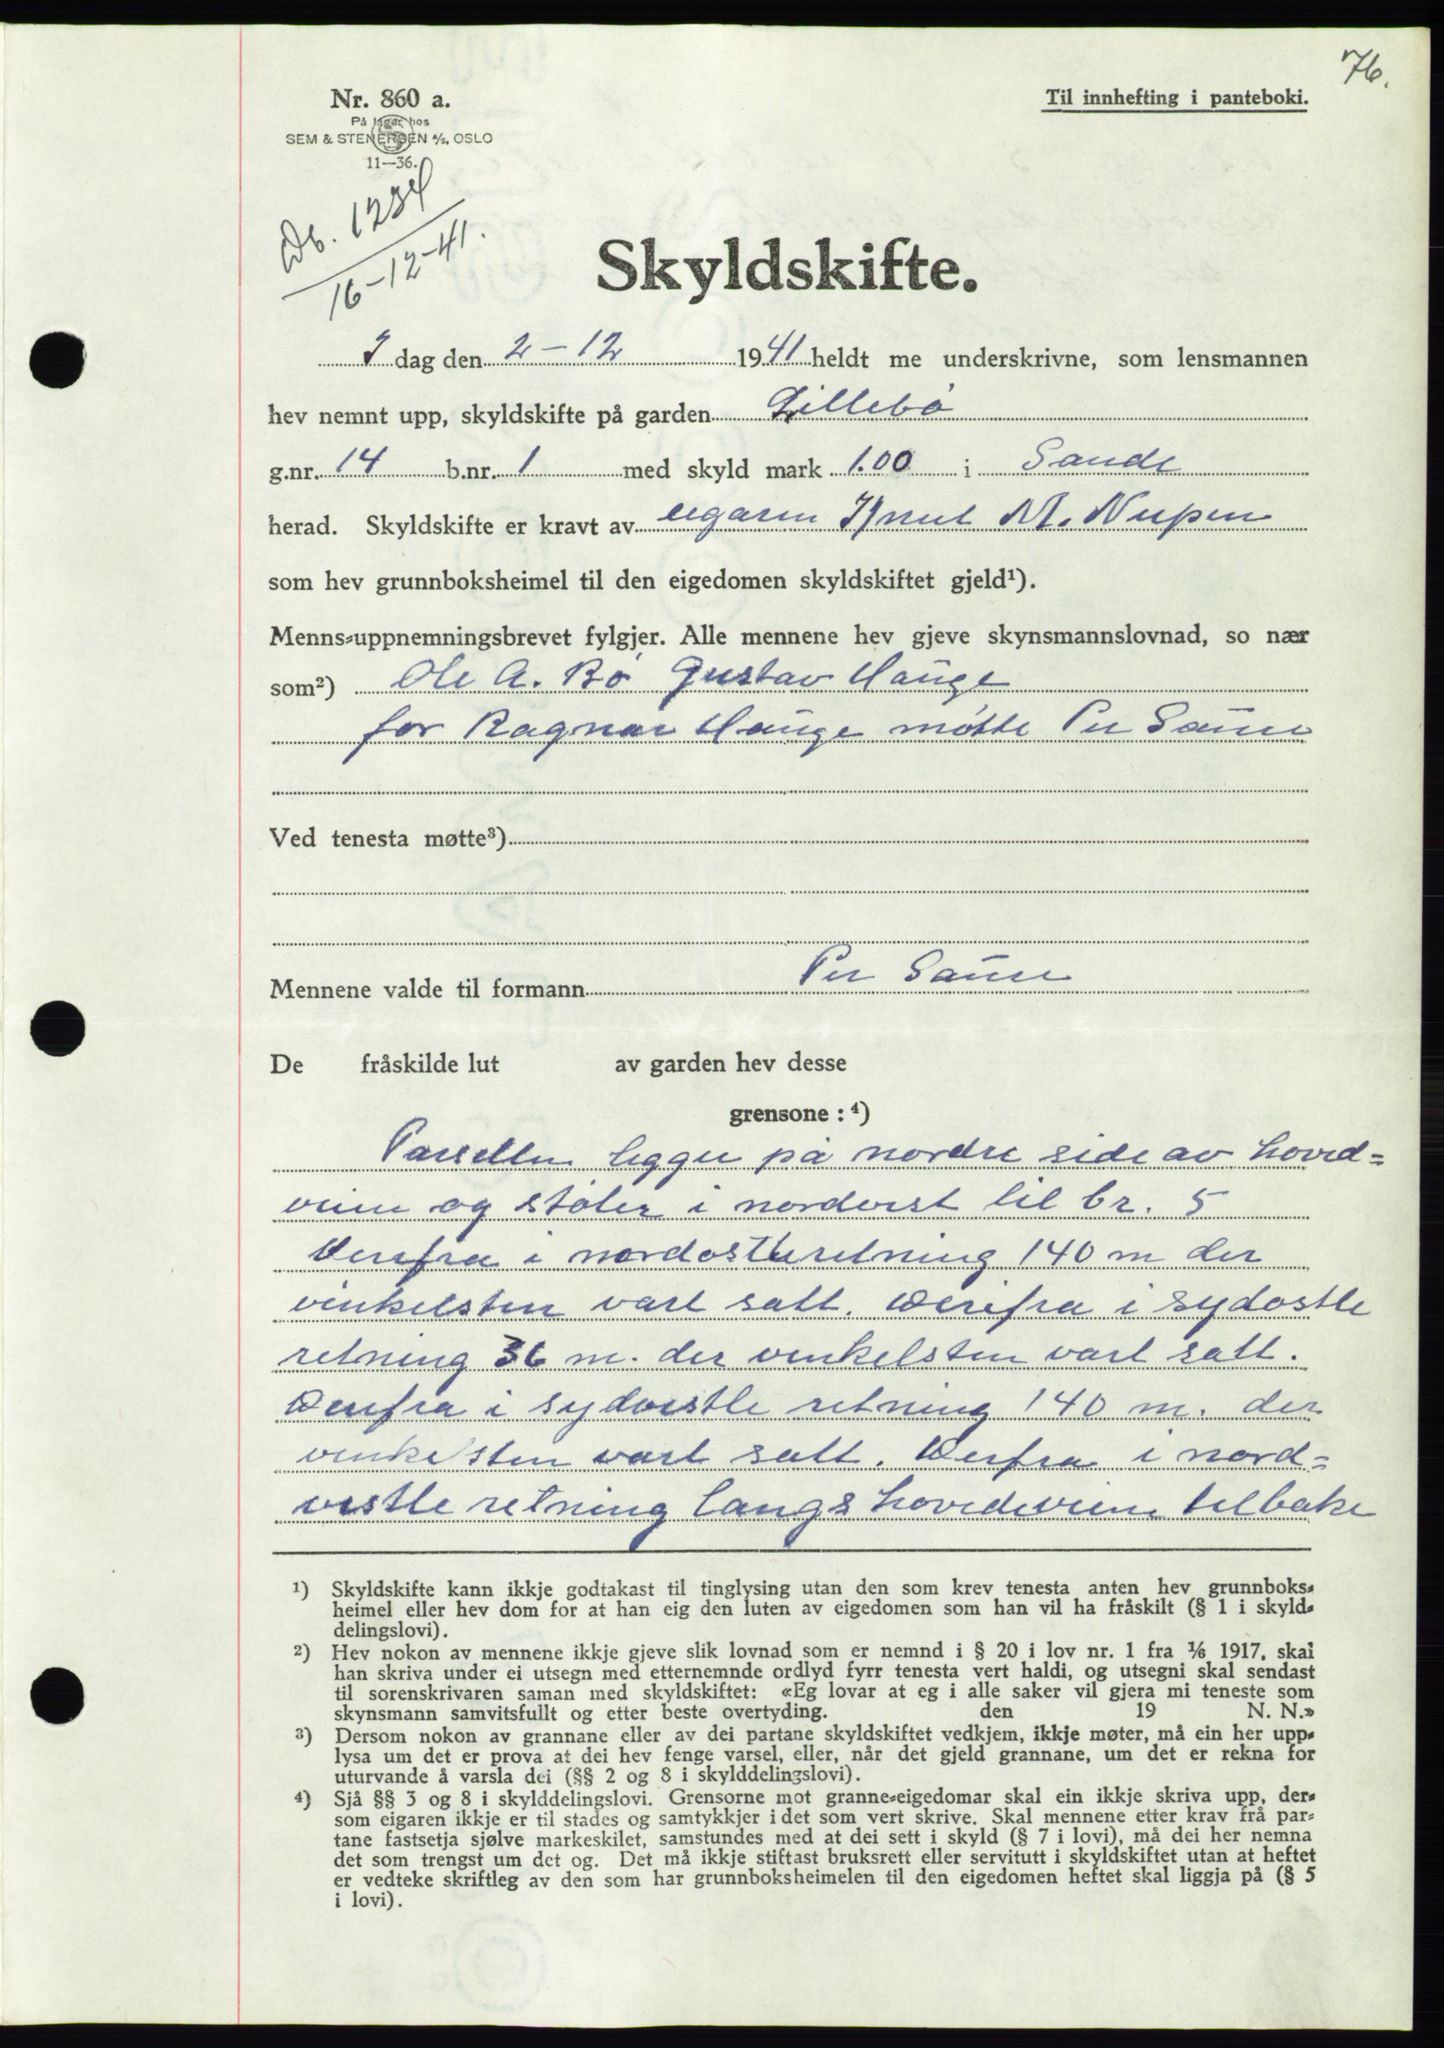 76.
Nr. 860 a.
Til innhefting i panteboki.
På lager hos
SEM & STENERSEN A/S, OSLO
11—36.
Db. 1284
16-12-41.
Skyldskifte.
I dag den 2-12 1941 heldt me underskrivne, som lensmannen
hev nemnt upp, skyldskifte på garden Lillebö
g.nr. 14 b.nr. 1 med skyld mark 1.00 i Sande
herad. Skyldskifte er kravt av eigaren Knut M. Nupen
som hev grunnboksheimel til den eigedomen skyldskiftet gjeld¹).
Menns-uppnemningsbrevet fylgjer. Alle mennene hev gjeve skynsmannslovnad, so nær
som²) Ole A. Bö Gustav Hauge
for Ragnar Hauge møtte Per Saure
Ved tenesta møtte³)
Mennene valde til formann Per Saure
De fråskilde lut av garden hev desse
grensone : ⁴)
Parsellen ligger på nordre side av hoved=
veien og støter i nordvest til br. 5
Derifra i nordostleretning 140 m der
vinkelsten vart satt. Derifra i sydostle
retning 36 m. der vinkelsten vart satt.
Derifra i sydvestle retning 140 m. der
vinkelsten vart satt. Derfra i nord=
vestle retning langs hovedveien tilbake
¹) Skyldskifte kann ikkje godtakast til tinglysing utan den som krev tenesta anten hev grunnboks-
heimel eller hev dom for at han eig den luten av eigedomen som han vil ha fråskilt (§ 1 i skyld-
delingslovi).
²) Hev nokon av mennene ikkje gjeve slik lovnad som er nemnd i § 20 i lov nr. 1 fra 1/6 1917, skal
han skriva under ei utsegn med etternemnde ordlyd fyrr tenesta vert haldi, og utsegni skal sendast
til sorenskrivaren saman med skyldskiftet: «Eg lovar at eg i alle saker vil gjera mi teneste som
skynsmann samvitsfullt og etter beste overtyding. den 19 N. N.»
³) Dersom nokon av grannane eller av dei partane skyldskiftet vedkjem, ikkje møter, må ein her upp-
lysa um det er prova at dei hev fenge varsel, eller, når det gjeld grannane, um det er rekna for
uturvande å varsla dei (§§ 2 og 8 i skylddelingslovi).
⁴) Sjå §§ 3 og 8 i skylddelingslovi. Grensorne mot granne-eigedomar skal ein ikkje skriva upp, der-
som eigaren ikkje er til stades og samtykkjer i det som vert skrive. Skal mennene etter krav frå par-
tane fastsetja sjølve markeskilet, samstundes med at dei sett i skyld (§ 7 i lovi), må dei her nemna
det som trengst um det og. Det må ikkje stiftast bruksrett eller servitutt i skyldskiftet utan at heftet
er vedteke skriftleg av den som har grunnboksheimelen til den eigedomen heftet skal liggja på (§ 5
i lovi).